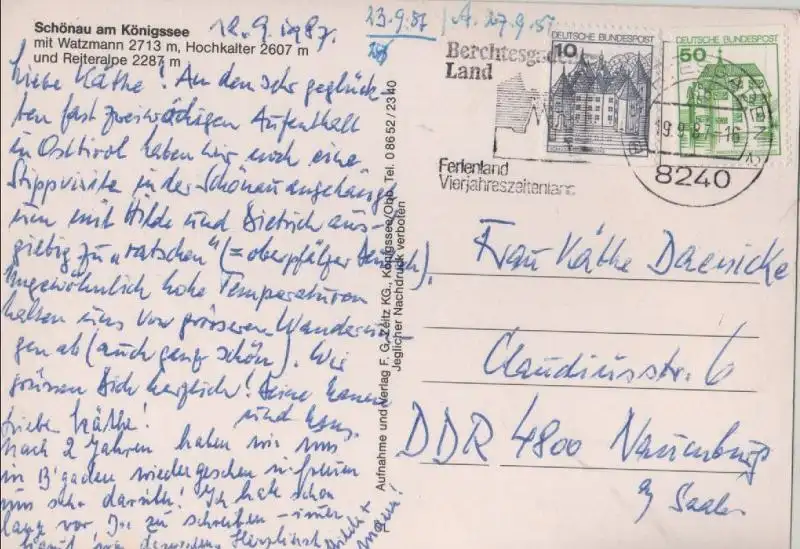 Schönau am Königssee
mit Watzmann 2713 m, Hochkalter 2607 m
und Reiteralpe 2287 m
18.9.1987.
Liebe Käthe! An den sehr geglück-
ten fast zweiwöchigen Aufenthalt
in Osttirol haben wir noch eine
Stippvisite in der Schönau angehängt
um mit Hilde und Dietrich aus-
giebig zu „ratschen" (= oberpfälzer Deutsch).
Ungewöhnlich hohe Temperaturen
halten uns von grösseren Wanderun-
gen ab (auch ganz schön). Wir
grüssen Dich herzlich! Deine
und
Liebe Käthe!
Nach 2 Jahren haben wir uns
in B'gaden wiedergesehen u. freuen
uns sehr darüber! Ich habe schon
lange vor, Dir zu schreiben – immer
kommt was dazwischen. Herzlichst
23.9.87 / A. 27.9.87
Berchtesgadener
Land
Ferienland
Vierjahreszeitenland
10
DEUTSCHE BUNDESPOST
50
DEUTSCHE BUNDESPOST
19.9.87-16
8240
Aufnahme und Verlag F. G. Zeitz KG., Königssee/Obb., Tel. 0 86 52 / 23 40
Jeglicher Nachdruck verboten
Frau Käthe Daenicke
Claudiusstr. 6
DDR 4800 Naumburg
a/ Saale